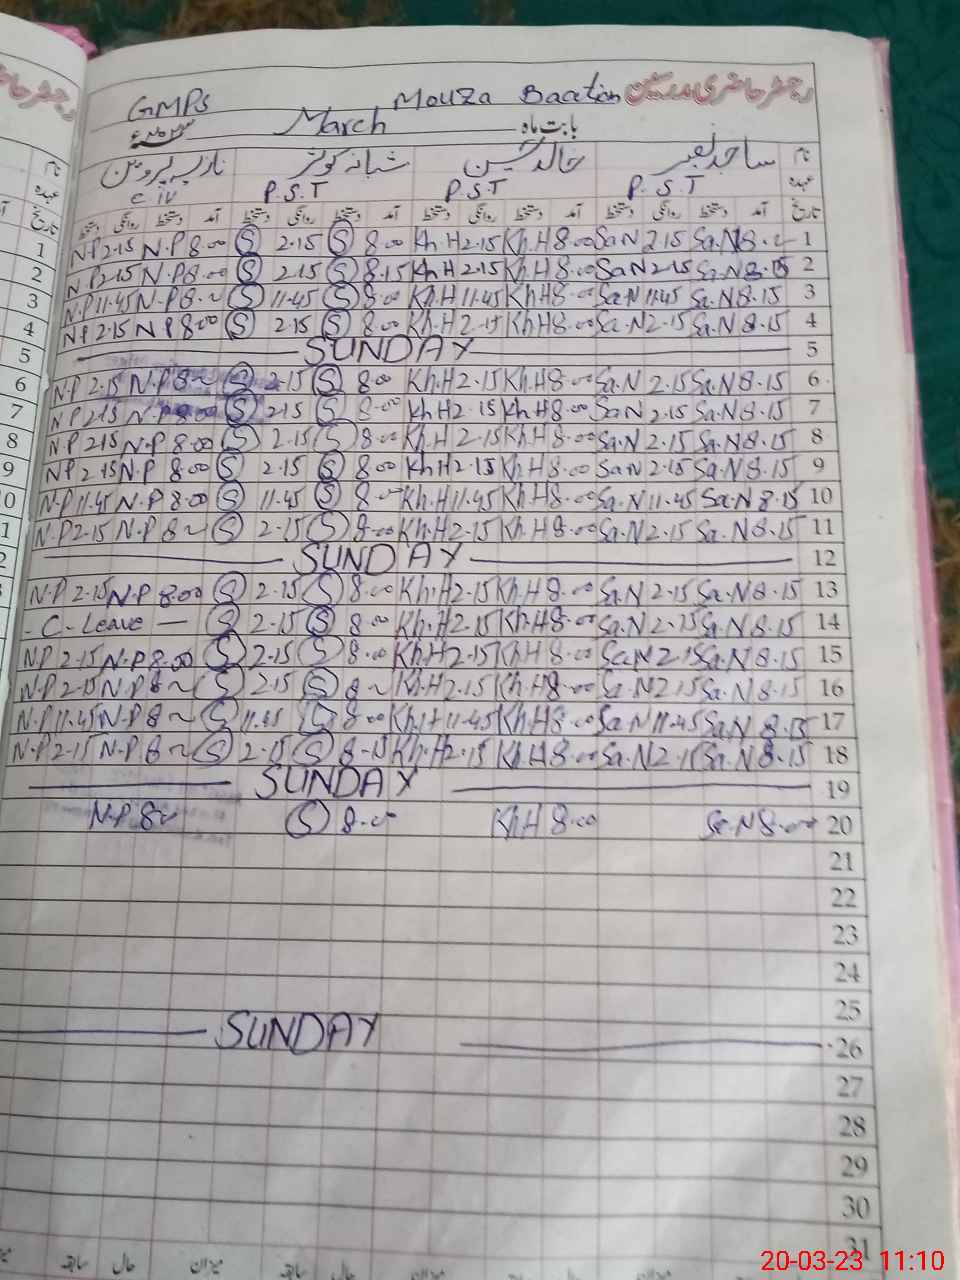 رجسٹر حاضری مدرسین
GMPS Mouza
بابت ماہ March
نام ساجد نصیر خالد حسین شبانہ کوثر نازیہ پروین
عہدہ P.S.T P.S.T P.S.T C IV
تاریخ آمد دستخط روانگی دستخط آمد دستخط روانگی دستخط آمد دستخط روانگی دستخط آمد دستخط روانگی دستخط
N.P 2.15 N.P 8.00 S 2.15 S 8.00 Kh.H 2.15 Kh.H 8.00 Sa.N 2.15 Sa.N 1
N.P 2.15 N.P 8.00 S 2.15 S 8.15 Kh.H 2.15 Kh.H 8.00 Sa.N 2.15 Sa.N 8.15 2
N.P 11.45 N.P 8~ S 11.45 S 8.00 Kh.H 11.45 Kh.H 8.00 Sa.N 11.45 Sa.N 8.15 3
N.P 2.15 N.P 8.00 S 2.15 S 8.00 Kh.H 2.15 Kh.H 8.00 Sa.N 2.15 Sa.N 8.15 4
SUNDAY 5
N.P 2.15 N.P 8~ S 2.15 S 8.00 Kh.H 2.15 Kh.H 8.00 Sa.N 2.15 Sa.N 8.15 6
N.P 2.15 N.P 8.00 S 2.15 S 8.00 Kh.H 2.15 Kh.H 8.00 Sa.N 2.15 Sa.N 8.15 7
N.P 2.15 N.P 8.00 S 2.15 S 8.00 Kh.H 2.15 Kh.H 8.00 Sa.N 2.15 Sa.N 8.15 8
N.P 2.15 N.P 8.00 S 2.15 S 8.00 Kh.H 2.15 Kh.H 8.00 Sa.N 2.15 Sa.N 8.15 9
N.P 11.45 N.P 8.00 S 11.45 S 8.00 Kh.H 11.45 Kh.H 8.00 Sa.N 11.45 Sa.N 8.15 10
N.P 2.15 N.P 8~ S 2.15 S 8.00 Kh.H 2.15 Kh.H 8.00 Sa.N 2.15 Sa.N 8.15 11
SUNDAY 12
N.P 2.15 N.P 8.00 S 2.15 S 8.00 Kh.H 2.15 Kh.H 8.00 Sa.N 2.15 Sa.N 8.15 13
- C - Leave — S 2.15 S 8.00 Kh.H 2.15 Kh.H 8.00 Sa.N 2.15 Sa.N 8.15 14
N.P 2.15 N.P 8.00 S 2.15 S 8.00 Kh.H 2.15 Kh.H 8.00 Sa.N 2.15 Sa.N 8.15 15
N.P 2.15 N.P 8~ S 2.15 S 8~ Kh.H 2.15 Kh.H 8.00 Sa.N 2.15 Sa.N 8.15 16
N.P 11.45 N.P 8~ S 11.45 S 8.00 Kh.H 11.45 Kh.H 8.00 Sa.N 11.45 Sa.N 8.15 17
N.P 2.15 N.P 8~ S 2.15 S 8.15 Kh.H 2.15 Kh.H 8.00 Sa.N 2.15 Sa.N 8.15 18
SUNDAY 19
N.P 8.00 S 8.00 Kh.H 8.00 Sa.N 8.00 20
21
22
23
24
25
SUNDAY 26
27
28
29
30
31
میزان حال سابقہ میزان حال سابقہ
20-03-23 11:10